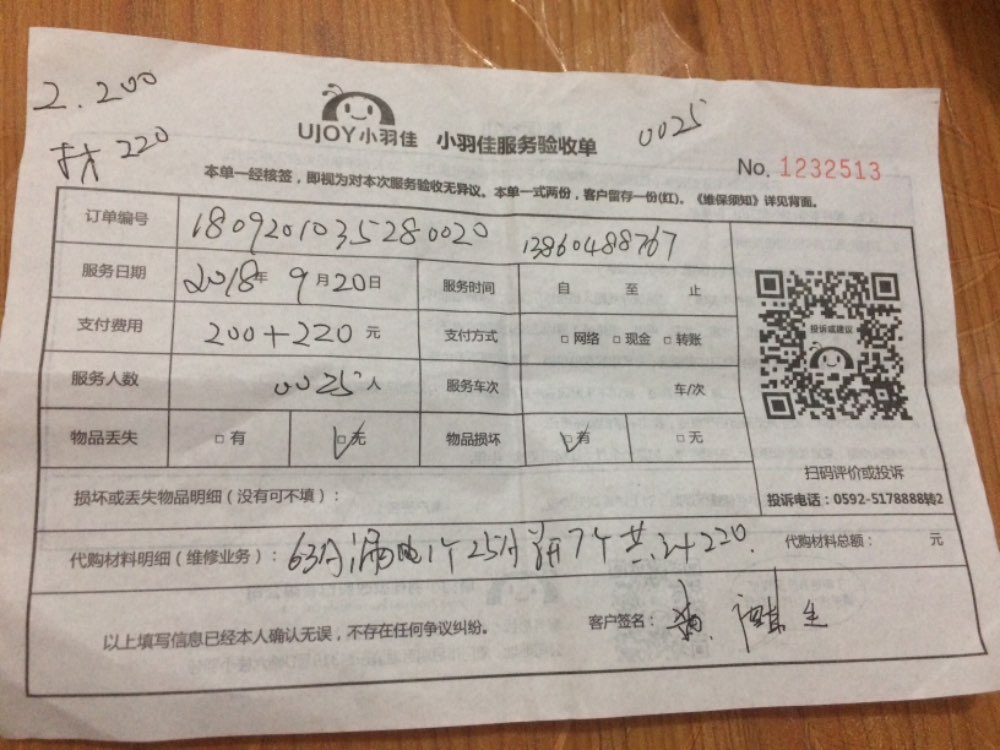 2.200
材 220
UJOY小羽佳 小羽佳服务验收单
0025
No. 1232513
本单一经核签，即视为对本次服务验收无异议。本单一式两份，客户留存一份(红)。《维保须知》详见背面。
订单编号 1809201035280020 13860488767
服务日期 2018年 9月20日 服务时间 自 至 止
支付费用 200+220 元 支付方式 □网络 □现金 □转账
投诉或建议
服务人数 0025人 服务车次 车/次
物品丢失 □有 □无 物品损坏 □有 □无
扫码评价或投诉
损坏或丢失物品明细（没有可不填）：
投诉电话：0592-5178888转2
代购材料明细（维修业务）： 63 漏电1个25 7个共计220. 代购材料总额： 元
以上填写信息已经本人确认无误，不存在任何争议纠纷。 客户签名：